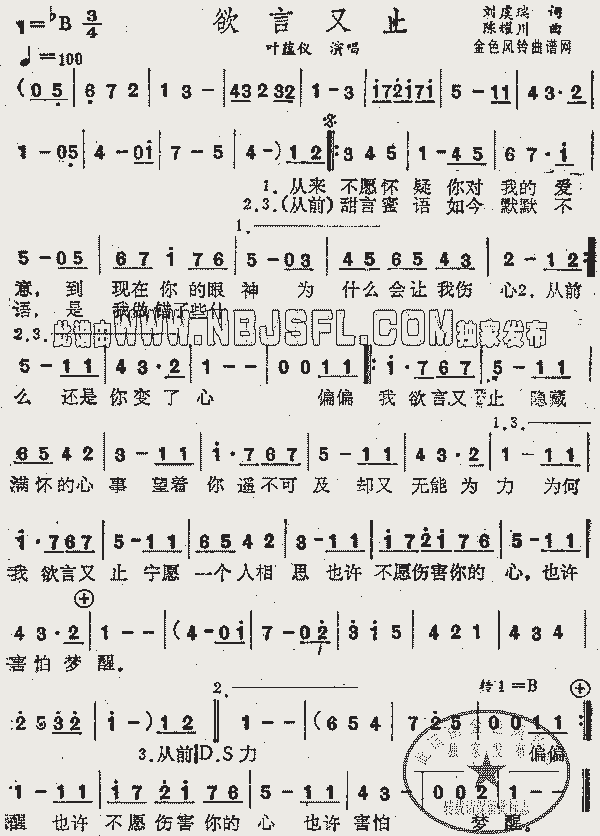 欲言又止
1=♭B 3/4
♩=100
叶蕴仪 演唱
刘虞瑞 词
陈耀川 曲
金色风铃曲谱网
(0 5 | 6 7 2 | 1 3 - | 43 2 32 | 1 - 3 | i7 2i 7i | 5 - 11 | 43 · 2 |
1 - 05 | 4 - 0i | 7 - 5 | 4 -) 1 2 |: 3 4 5 | 1 - 45 | 6 7 · i |
1. 从来 不愿怀 疑 你对 我的 爱
2.3.(从前)甜言蜜 语 如今 默默 不
1.
5 - 05 | 67 i 76 | 5 - 03 | 45 65 43 | 2 - 12 :|
意, 到 现在你的眼 神 为 什么会让我伤 心2. 从前
语, 是 我做错了些什
2.3.
此谱由WWW.NBJSFL.COM独家发布
5 - 11 | 43 · 2 | 1 - - | 0 0 11 |: i · 767 | 5 - 11 |
么 还是 你变了 心 偏偏 我 欲言又 止 隐藏
1.3.
65 4 2 | 3 - 11 | i · 767 | 5 - 11 | 43 · 2 | 1 - 11 |
满怀的心 事 望着 你 遥不可 及 却又 无能为 力 为何
i · 767 | 5 - 11 | 65 42 | 3 - 11 | i7 2i 76 | 5 - 11 |
我 欲言又 止 宁愿 一个人相 思 也许 不愿伤害你的 心, 也许
4 3 · 2 | 1 - - | (4 - 0i | 7 - 02 | 3 i 5 | 4 2 1 | 4 3 4 |
害怕 梦 醒.
2. 转1=B
2 5 32 | i -) 12 || 1 - - | (6 5 4 | 7 25 | 0 0 11 :|
3. 从前 D.S 力 偏偏
1 - 11 | i7 2i 76 | 5 - 11 | 4 3 - | 0 0 2 | 1 - - ||
醒 也许 不愿伤害你的 心 也许 害怕 梦 醒.